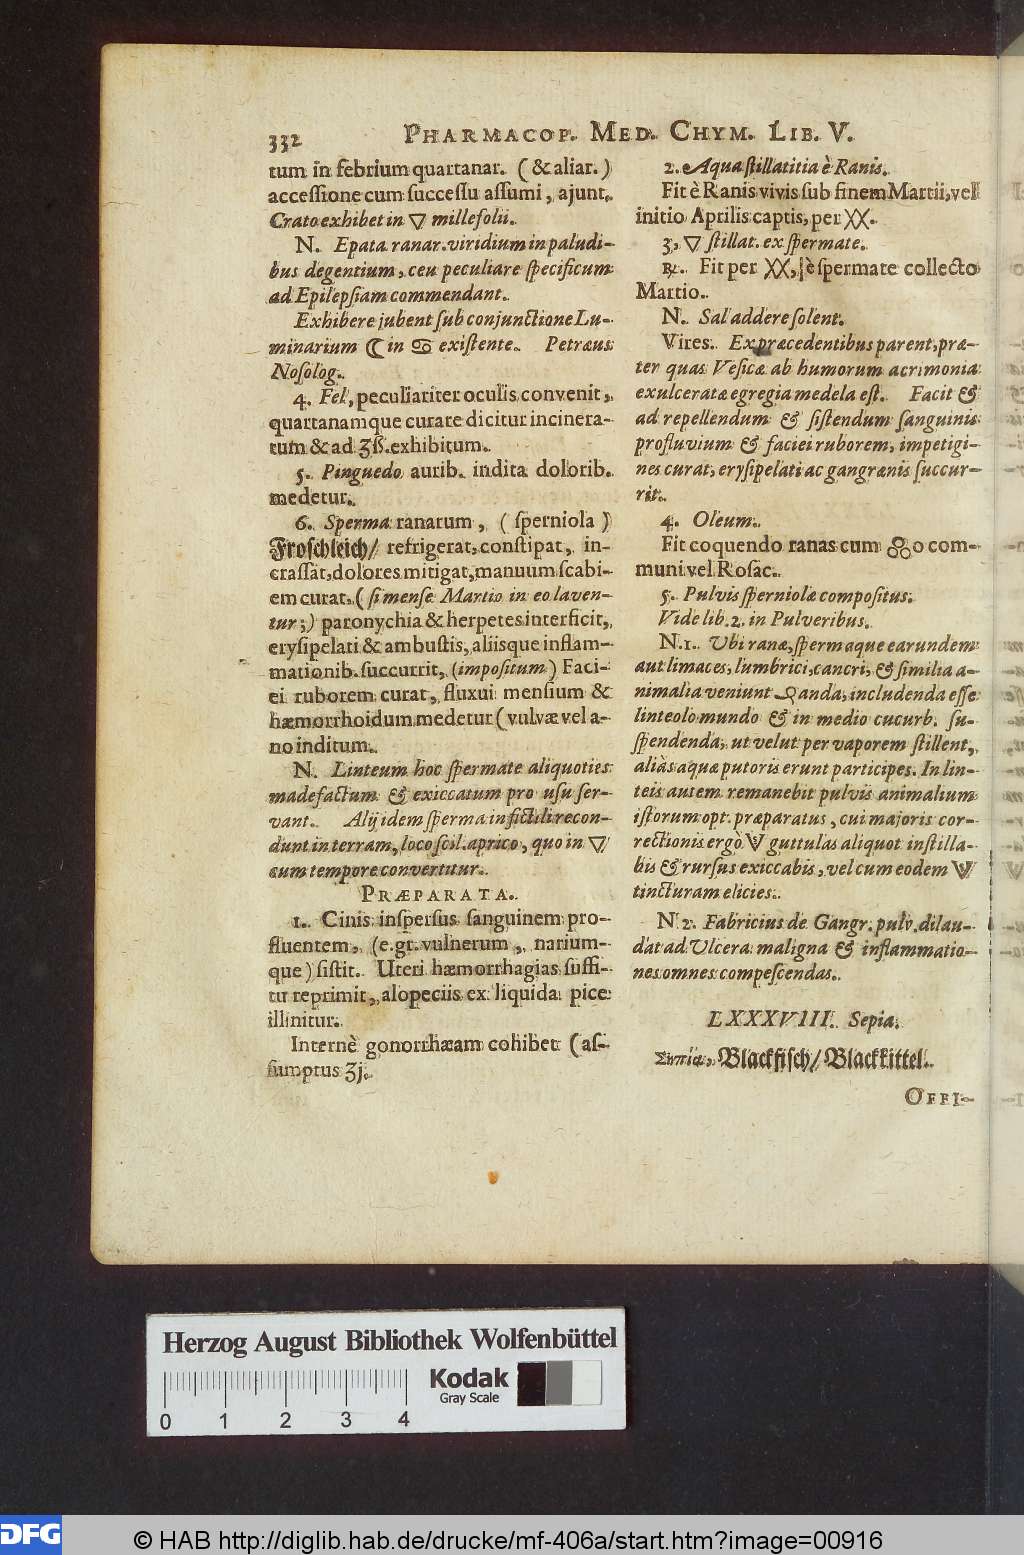 332 PHARMACOP. MED. CHYM. LIB. V.
tum in febrium quartanar. (& aliar.)
accessione cum successu assumi, ajunt.
Crato exhibet in 🜄 millefolii.
N. Epata ranar. viridium in paludi-
bus degentium, ceu peculiare specificum
ad Epilepsiam commendant.
Exhibere jubent sub conjunctione Lu-
minarium ☾ in ♋ existente. Petræus
Nosolog.
4. Fel, peculiariter oculis convenit,
quartanamque curare dicitur incinera-
tum & ad ʒß. exhibitum.
5. Pinguedo aurib. indita dolorib.
medetur.
6. Sperma ranarum, (sperniola)
Froschleich/ refrigerat, constipat, in-
crassat, dolores mitigat, manuum scabi-
em curat. (si mense Martio in eo laven-
tur;) paronychia & herpetes interficit,
erysipelati & ambustis, aliisque inflam-
mationib. succurrit, (impositum) Faci-
ei ruborem curat, fluxui mensium &
hæmorrhoidum medetur (vulvæ vel a-
no inditum.
N. Linteum hoc spermate aliquoties
madefactum & exiccatum pro usu ser-
vant. Alij idem sperma in fictili recon-
dunt in terram, loco scil. aprico, quo in 🜄
cum tempore convertitur.
PRÆPARATA.
1. Cinis inspersus sanguinem pro-
fluentem, (e. gr. vulnerum, narium-
que) sistit. Uteri hæmorrhagias suffi-
tu reprimit, alopeciis ex liquida pice
illinitur.
Internè gonorrhæam cohibet (as-
sumptus ʒj.
2. Aqua stillatitia è Ranis.
Fit è Ranis vivis sub finem Martii, vel
initio Aprilis captis, per XX.
3, 🜄 stillat. ex spermate.
℞. Fit per XX, è spermate collecto
Martio.
N. Sal addere solent.
Vires. Ex præcedentibus parent, præ-
ter quas Vesicæ ab humorum acrimonia
exulceratæ egregia medela est. Facit &
ad repellendum & sistendum sanguinis
profluvium & faciei ruborem, impetigi-
nes curat, erysipelati ac gangrænis succur-
rit.
4. Oleum.
Fit coquendo ranas cum ஃo com-
muni vel Rosac.
5. Pulvis sperniolæ compositus.
Vide lib. 2. in Pulveribus.
N. 1. Ubi ranæ, spermaque earundem
aut limaces, lumbrici, cancri, & similia a-
nimalia veniunt anda, includenda esse
linteolo mundo & in medio cucurb. su-
spendenda, ut velut per vaporem stillent,
aliàs aquæ putoris erunt participes. In lin-
teis autem remanebit pulvis animalium
istorum opt. præparatus, cui majoris cor-
rectionis ergò guttulas aliquot instilla-
bis & rursus exiccabis, vel cum eodem
tincturam elicies.
N 2. Fabricius de Gangr. pulv. dilau-
dat ad Ulcera maligna & inflammatio-
nes omnes compescendas.
LXXXVIII. Sepia.
Σηπία, Blackfisch/ Blackkittel.
OFFI-
Herzog August Bibliothek Wolfenbüttel
Kodak
Gray Scale
0 1 2 3 4
DFG © HAB http://diglib.hab.de/drucke/mf-406a/start.htm?image=00916